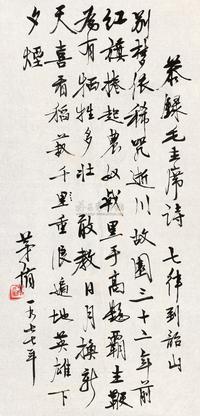 恭録毛主席詩 七律到韶山
别梦依稀咒逝川故園三十二年前
红旗捲起農奴戟黑手高懸霸主鞭
為有牺牲多壮敢教日月換新
天喜看稻菽千里重浪遍地英雄下
夕煙
茅盾 一九七七年